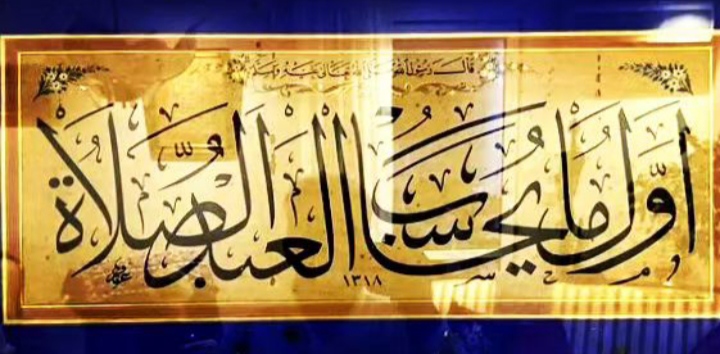 قال رسول الله صلى الله تعالى عليه وسلم
أول ما يحاسب العبد الصلاة
١٣١٨